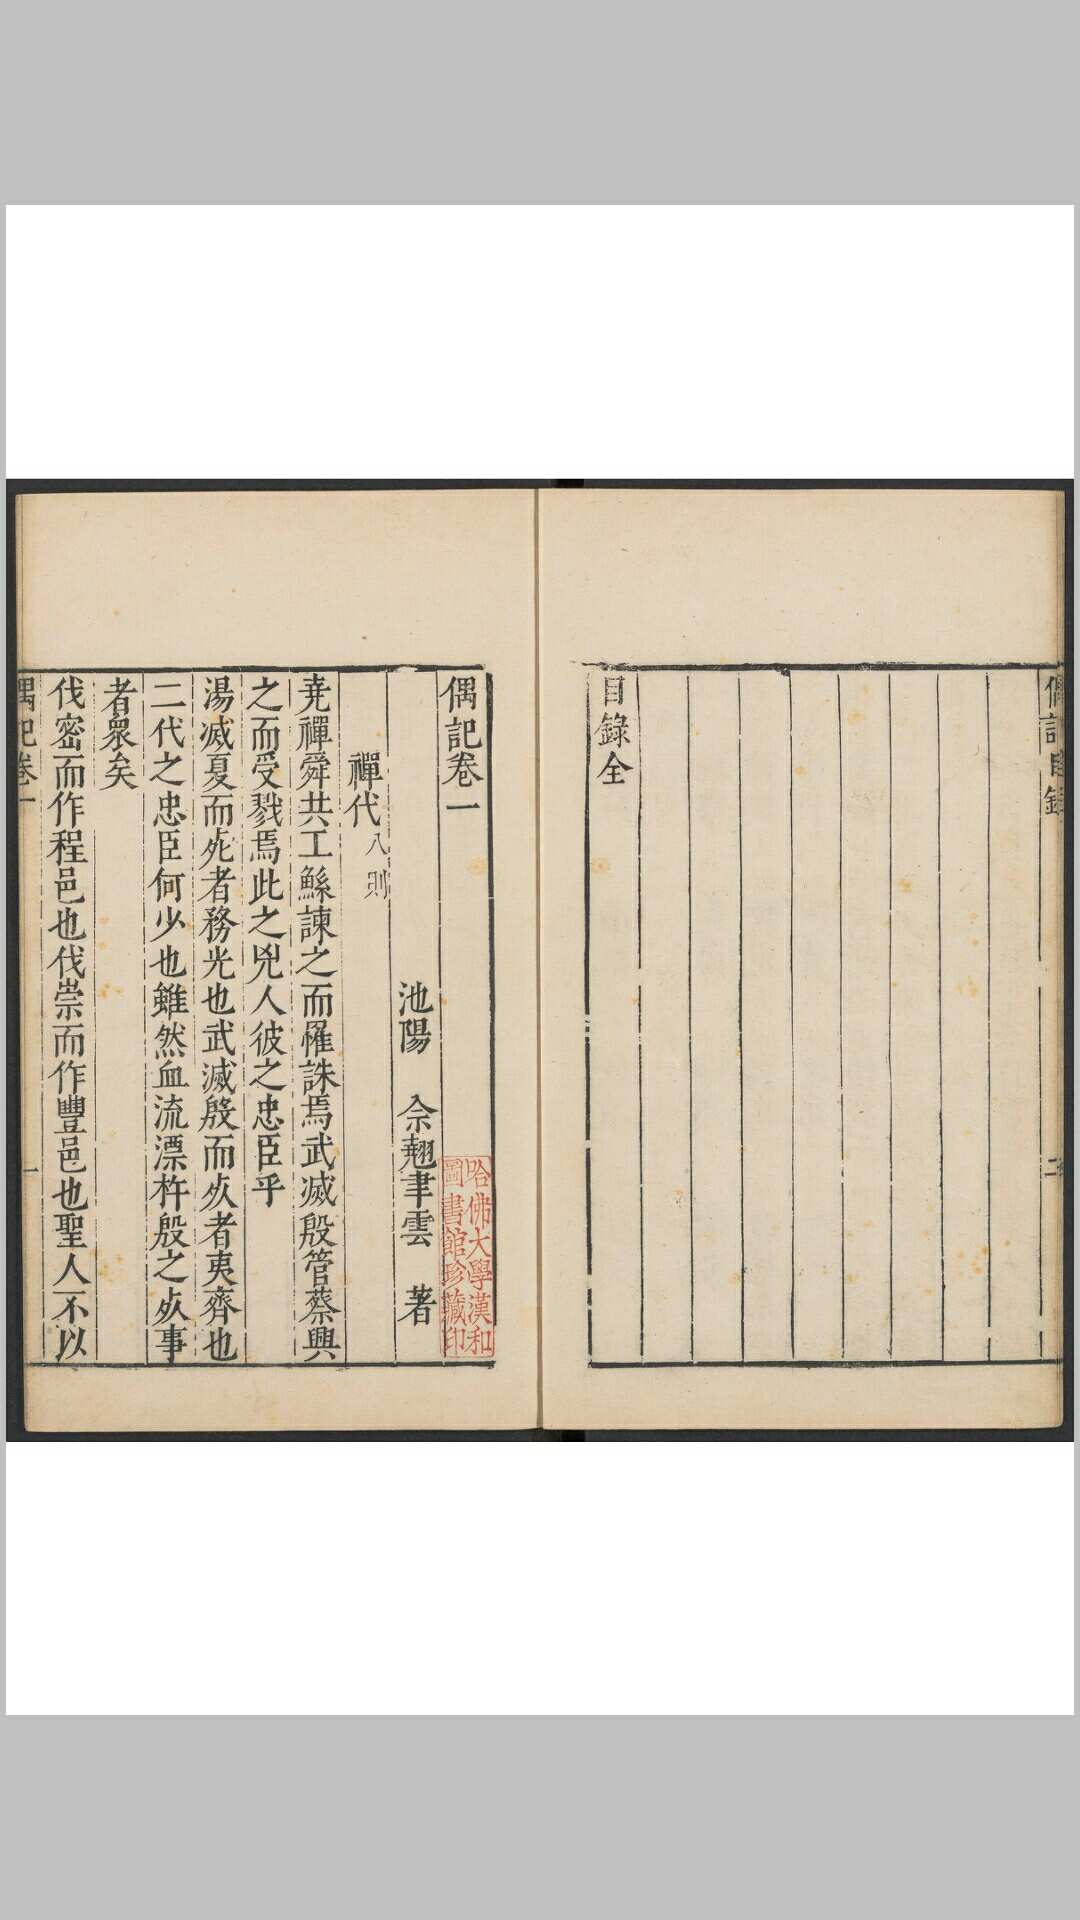 偶記目錄
二
目錄全
偶記卷一
池陽 佘翹聿雲 著
禪代八則
堯禪舜共工鯀諫之而罹誅焉武滅殷管蔡興
之而受戮焉此之兇人彼之忠臣乎
湯滅夏而死者務光也武滅殷而死者夷齊也
二代之忠臣何少也雖然血流漂杵殷之死事
者衆矣
伐密而作程邑也伐崇而作豐邑也聖人不以
偶記卷一
一
哈佛大學漢和
圖書館珍藏印